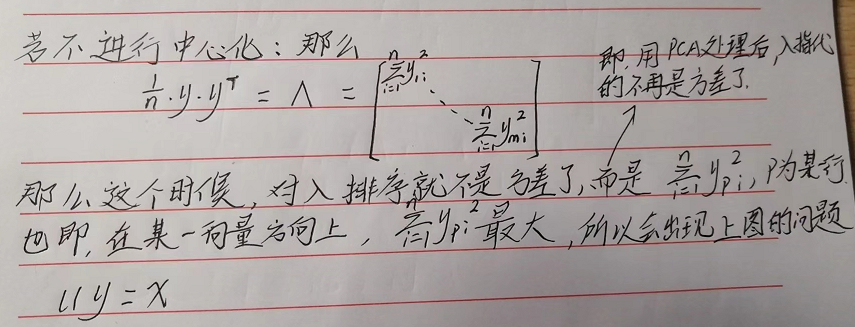 若不进行中心化：那么
1/n·y·y^T = Λ = [∑_{i=1}^{n} y_{1i}^2 ⋱ ∑_{i=1}^{n} y_{mi}^2]
即,用PCA处理后,λ指代
的不再是方差了.
那么这个时候,对λ排序就不是方差了,而是 ∑_{i=1}^{n} y_{pi}^2, P为某行
也即,在某一向量方向上, ∑_{i=1}^{n} y_{pi}^2 最大,所以会出现上图的问题
uy=x